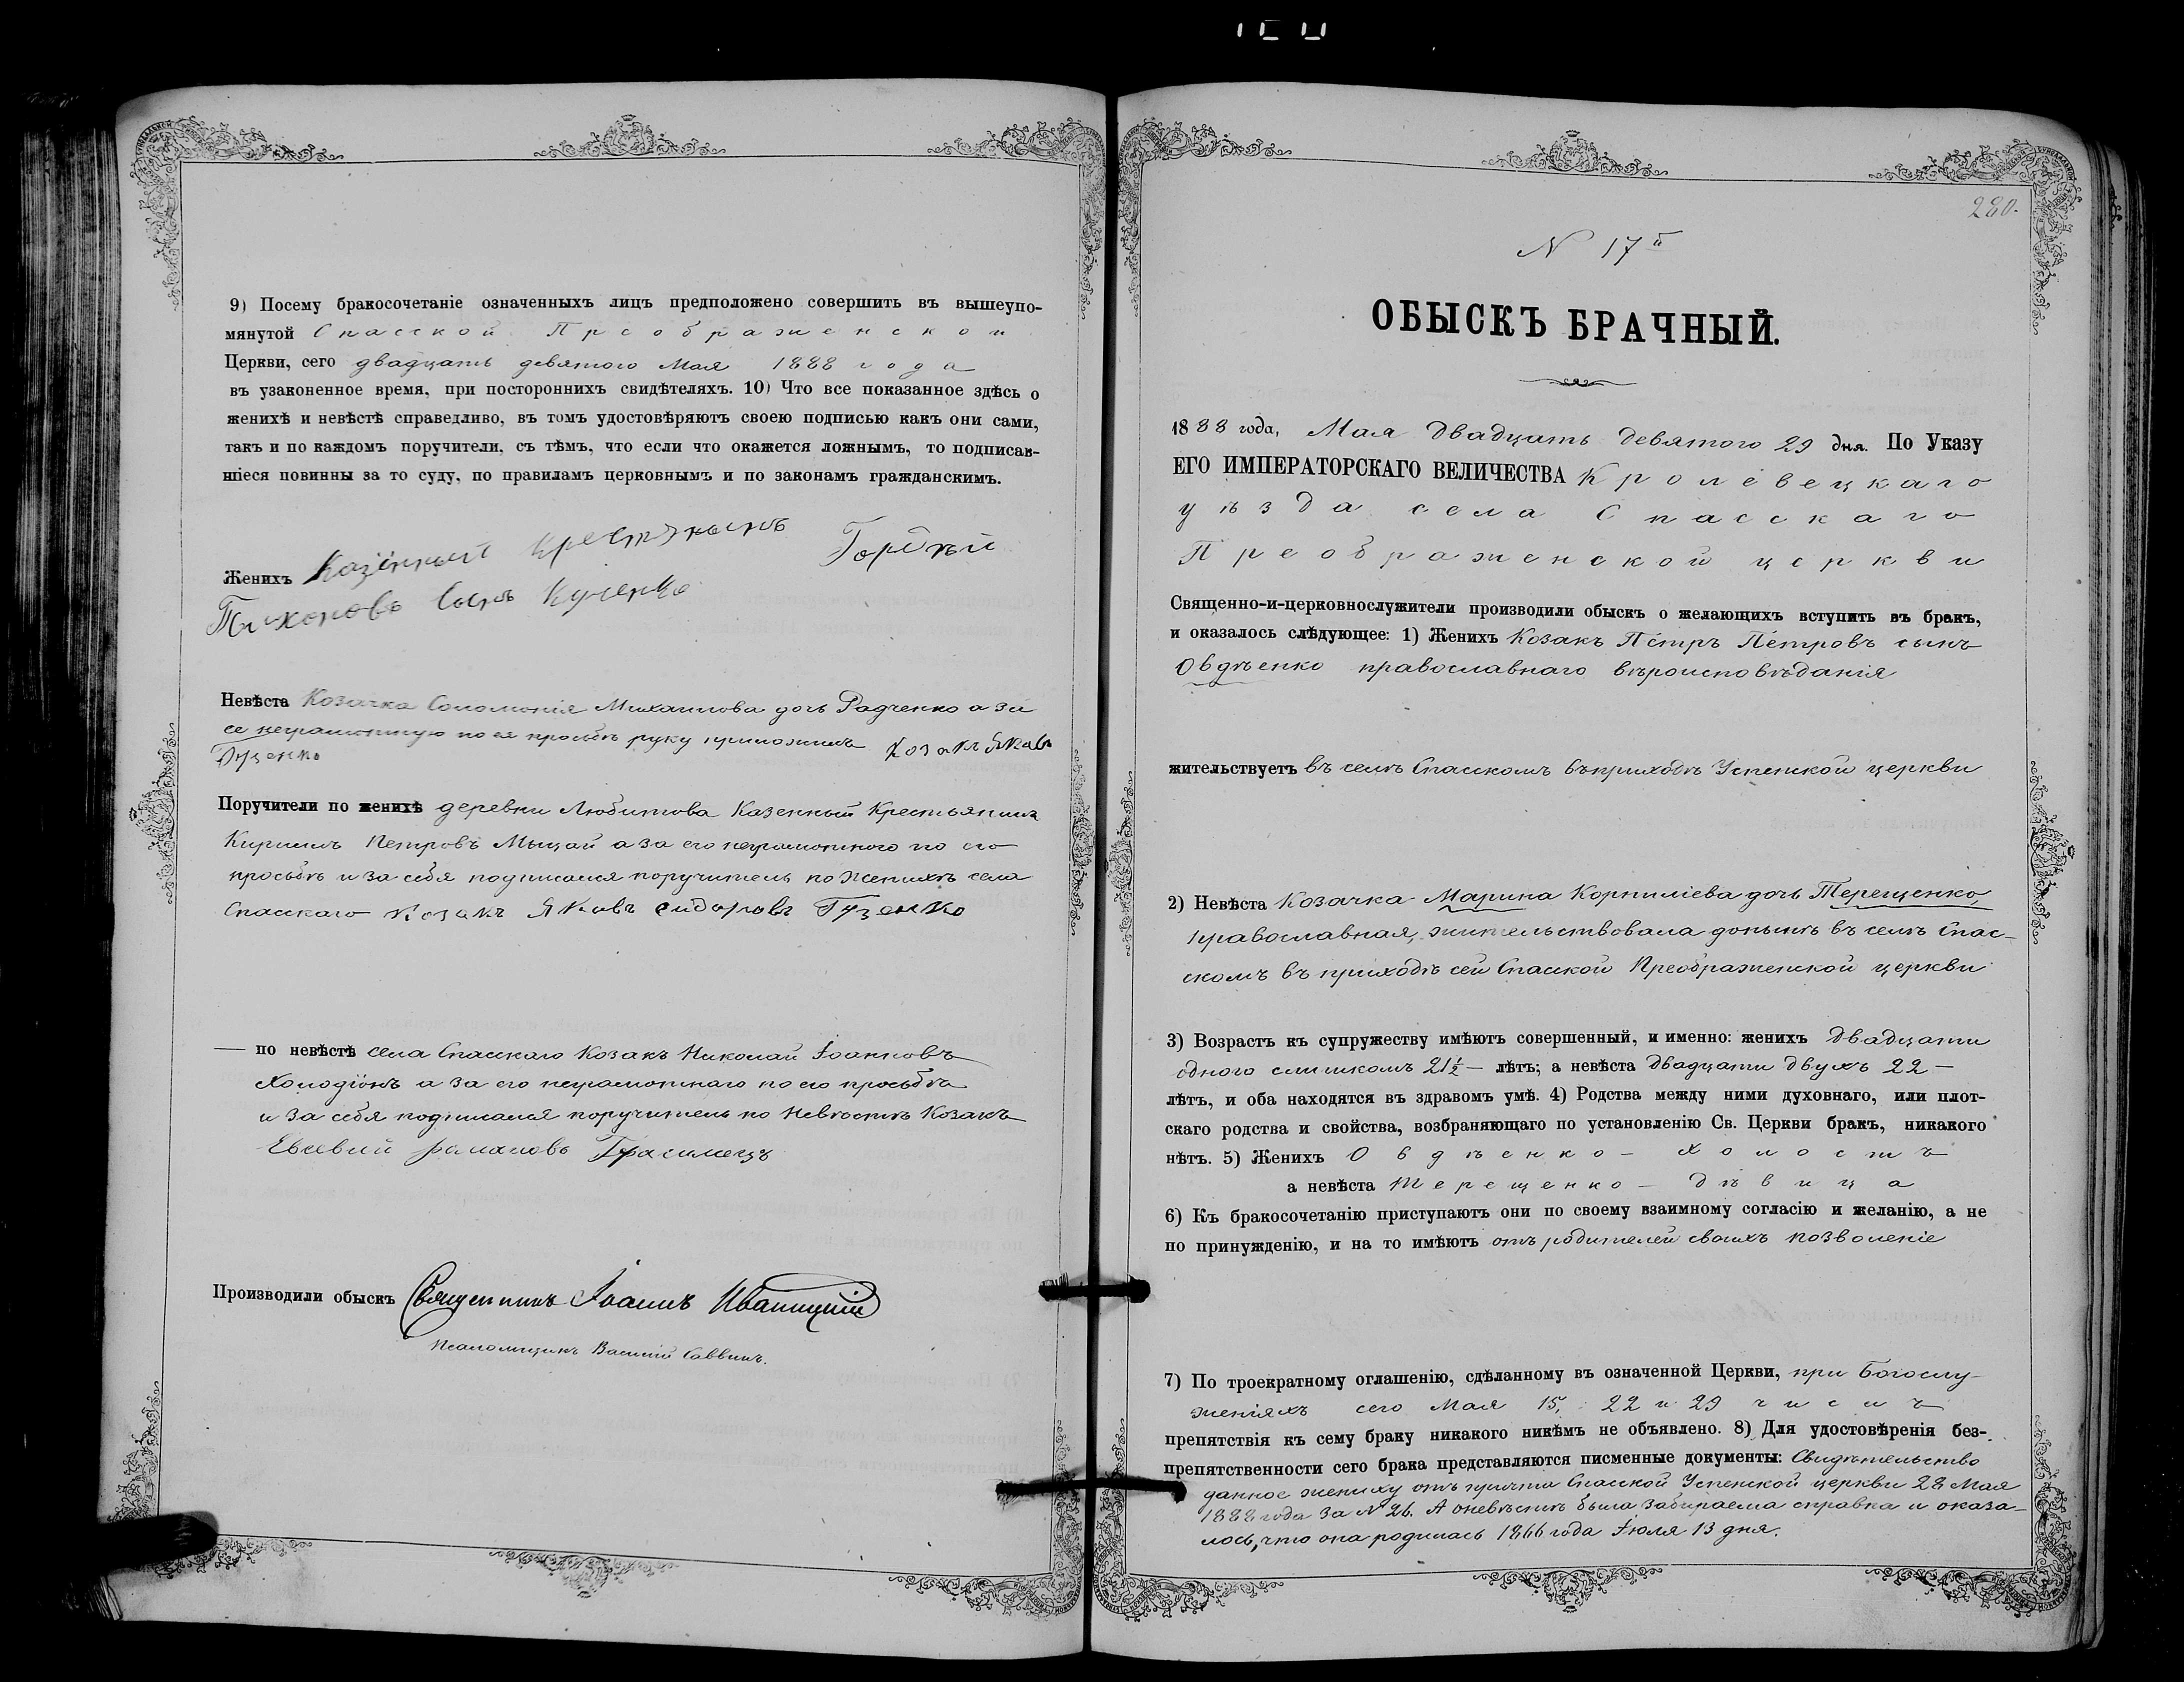 9) Посему бракосочетаніе означенныхъ лицъ предположено совершить въ вышеупо-
мянутой Спасской Преображенской
Церкви, сего двадцать девятого Мая 1888 года
въ узаконенное время, при постороннихъ свидѣтеляхъ. 10) Что все показанное здѣсь о
женихѣ и невѣстѣ справедливо, въ томъ удостовѣряютъ своею подписью какъ они сами,
такъ и по каждомъ поручители, съ тѣмъ, что если что окажется ложнымъ, то подписав-
шіеся повинны за то суду, по правиламъ церковнымъ и по законамъ гражданскимъ.
Женихъ Казенный
Тихоновъ сынъ
Невѣста Козачка Соломонія Михаилова дочь Радченко а за
ее неграмотную по ея просьбѣ руку приложилъ Козакъ Яковъ
Гуценко
Поручители по женихѣ деревни Любитова Казенный Крестьянинъ
Кириллъ Петровъ Мыцай а за его неграмотного по его
просьбѣ и за себя подписался поручитель по Женихѣ села
Спасскаго Козакъ Яковъ Сидоровъ Гуценко
— по невѣстѣ села Спасскаго Козакъ Николай Іоанновъ
Холодіонъ а за его неграмотнаго по его просьбѣ
и за себя подписался поручитель по Невѣстѣ Козакъ
Евсевий
Производили обыскъ Священникъ Іоаннъ Иваницкій
Псаломщикъ Василій Саввичъ.
280.
N 17й
ОБЫСКЪ БРАЧНЫЙ.
1888 года, Мая Двадцать девятого 29 дня. По Указу
ЕГО ИМПЕРАТОРСКАГО ВЕЛИЧЕСТВА Кролевецкаго
уѣзда села Спасскаго
Преображенской церкви
Священно-и-церковнослужители производили обыскъ о желающихъ вступить въ бракъ,
и оказалось слѣдующее: 1) Женихъ Козакъ Петръ Петровъ сынъ
Овдѣенко православнаго вѣроисповѣданія
жительствуетъ въ селѣ Спасскомъ въ приходѣ Успенской церкви
2) Невѣста Козачка Марина Корниліева дочь Терещенко,
православная, жительствовала донынѣ въ селѣ Спас-
скомъ въ приходѣ сей Спаской Преображенской церкви
3) Возрастъ къ супружеству имѣютъ совершенный, и именно: женихъ Двадцати
одного слишкомъ 21½ — лѣтъ; а невѣста Двадцати двухъ 22 —
лѣтъ, и оба находятся въ здравомъ умѣ. 4) Родства между ними духовнаго, или плот-
скаго родства и свойства, возбраняющаго по установленію Св. Церкви бракъ, никакого
нѣтъ. 5) Женихъ Овдѣенко — холостъ
а невѣста Терещенко — дѣвица
6) Къ бракосочетанію приступаютъ они по своему взаимному согласію и желанію, а не
по принужденію, и на то имѣютъ отъ родителей своихъ позволеніе
7) По троекратному оглашенію, сдѣланному въ означенной Церкви, при Богослу-
женіяхъ сего Мая 15, 22 и 29 числъ
препятствія къ сему браку никакого никѣмъ не объявлено. 8) Для удостовѣренія без-
препятственности сего брака представляются писменные документы: Свидѣтельство
данное жениху отъ причта Спаской Успенской церкви 28 Мая
1888 года за № 26. А о невѣстѣ была забираема справка и оказа-
лось, что она родилась 1866 года Іюля 13 дня.